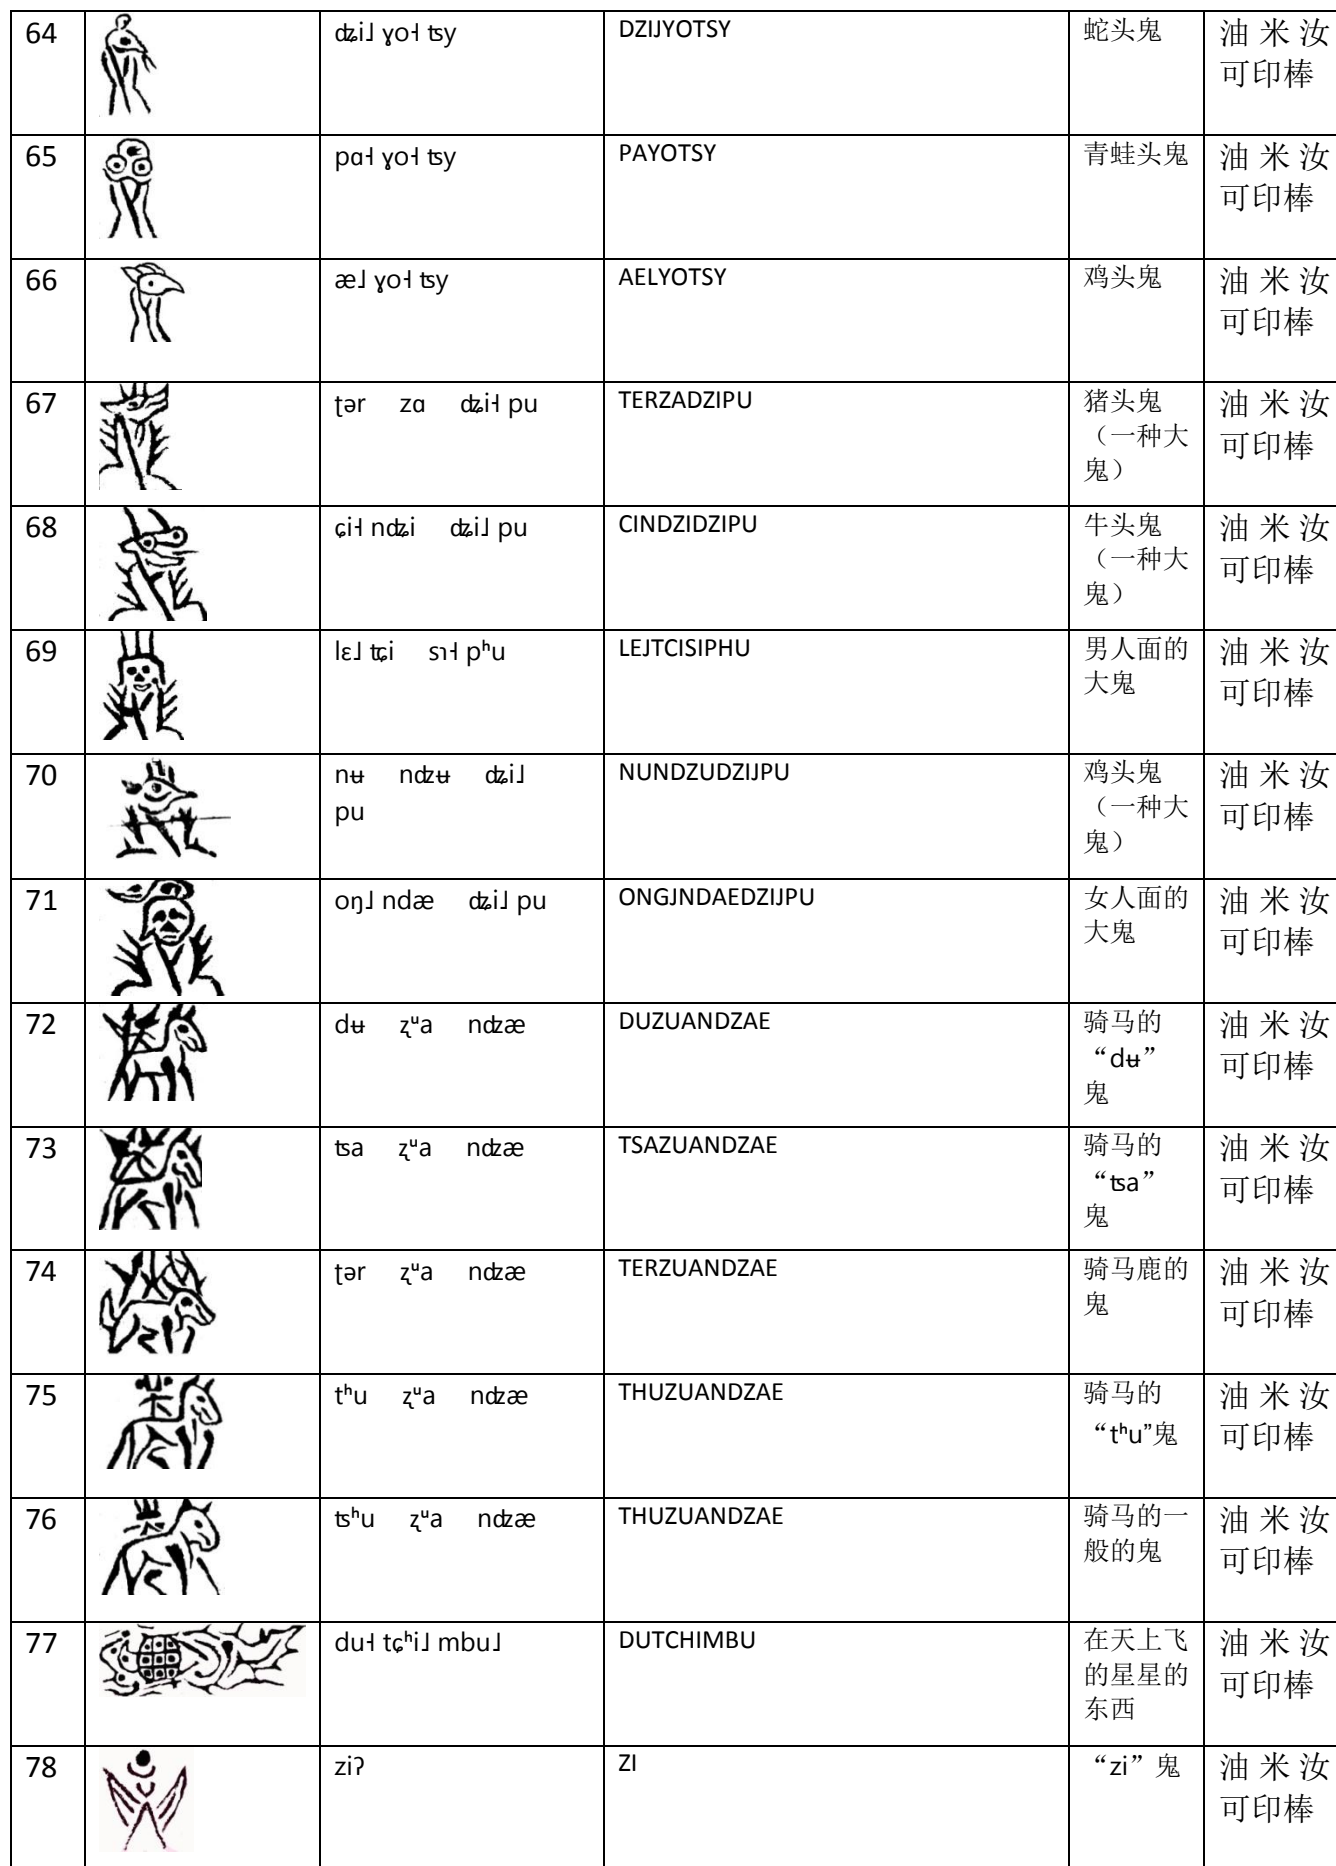 64 ʥi˩ ɣo˧ ʦy DZIJYOTSY 蛇头鬼 油米汝
可印棒
65 pɑ˧ ɣo˧ ʦy PAYOTSY 青蛙头鬼 油米汝
可印棒
66 æ˩ ɣo˧ ʦy AELYOTSY 鸡头鬼 油米汝
可印棒
67 ʈər zɑ ʥi˧ pu TERZADZIPU 猪头鬼 油米汝
（一种大 可印棒
鬼）
68 ɕi˧ nʥi ʥi˩ pu CINDZIDZIPU 牛头鬼 油米汝
（一种大 可印棒
鬼）
69 lɛ˩ ʨi sɿ˧ pʰu LEJTCISIPHU 男人面的 油米汝
大鬼 可印棒
70 nʉ nʣʉ ʥi˩ NUNDZUDZIJPU 鸡头鬼 油米汝
pu （一种大 可印棒
鬼）
71 oŋ˩ ndæ ʥi˩ pu ONGJNDAEDZIJPU 女人面的 油米汝
大鬼 可印棒
72 dʉ ʐᵘa nʣæ DUZUANDZAE 骑马的 油米汝
“dʉ” 可印棒
鬼
73 ʦa ʐᵘa nʣæ TSAZUANDZAE 骑马的 油米汝
“ʦa” 可印棒
鬼
74 ʈər ʐᵘa nʣæ TERZUANDZAE 骑马鹿的 油米汝
鬼 可印棒
75 tʰu ʐᵘa nʣæ THUZUANDZAE 骑马的 油米汝
“tʰu”鬼 可印棒
76 ʦʰu ʐᵘa nʣæ THUZUANDZAE 骑马的一 油米汝
般的鬼 可印棒
77 du˧ tɕʰi˩ mbu˩ DUTCHIMBU 在天上飞 油米汝
的星星的 可印棒
东西
78 ziʔ ZI “zi”鬼 油米汝
可印棒